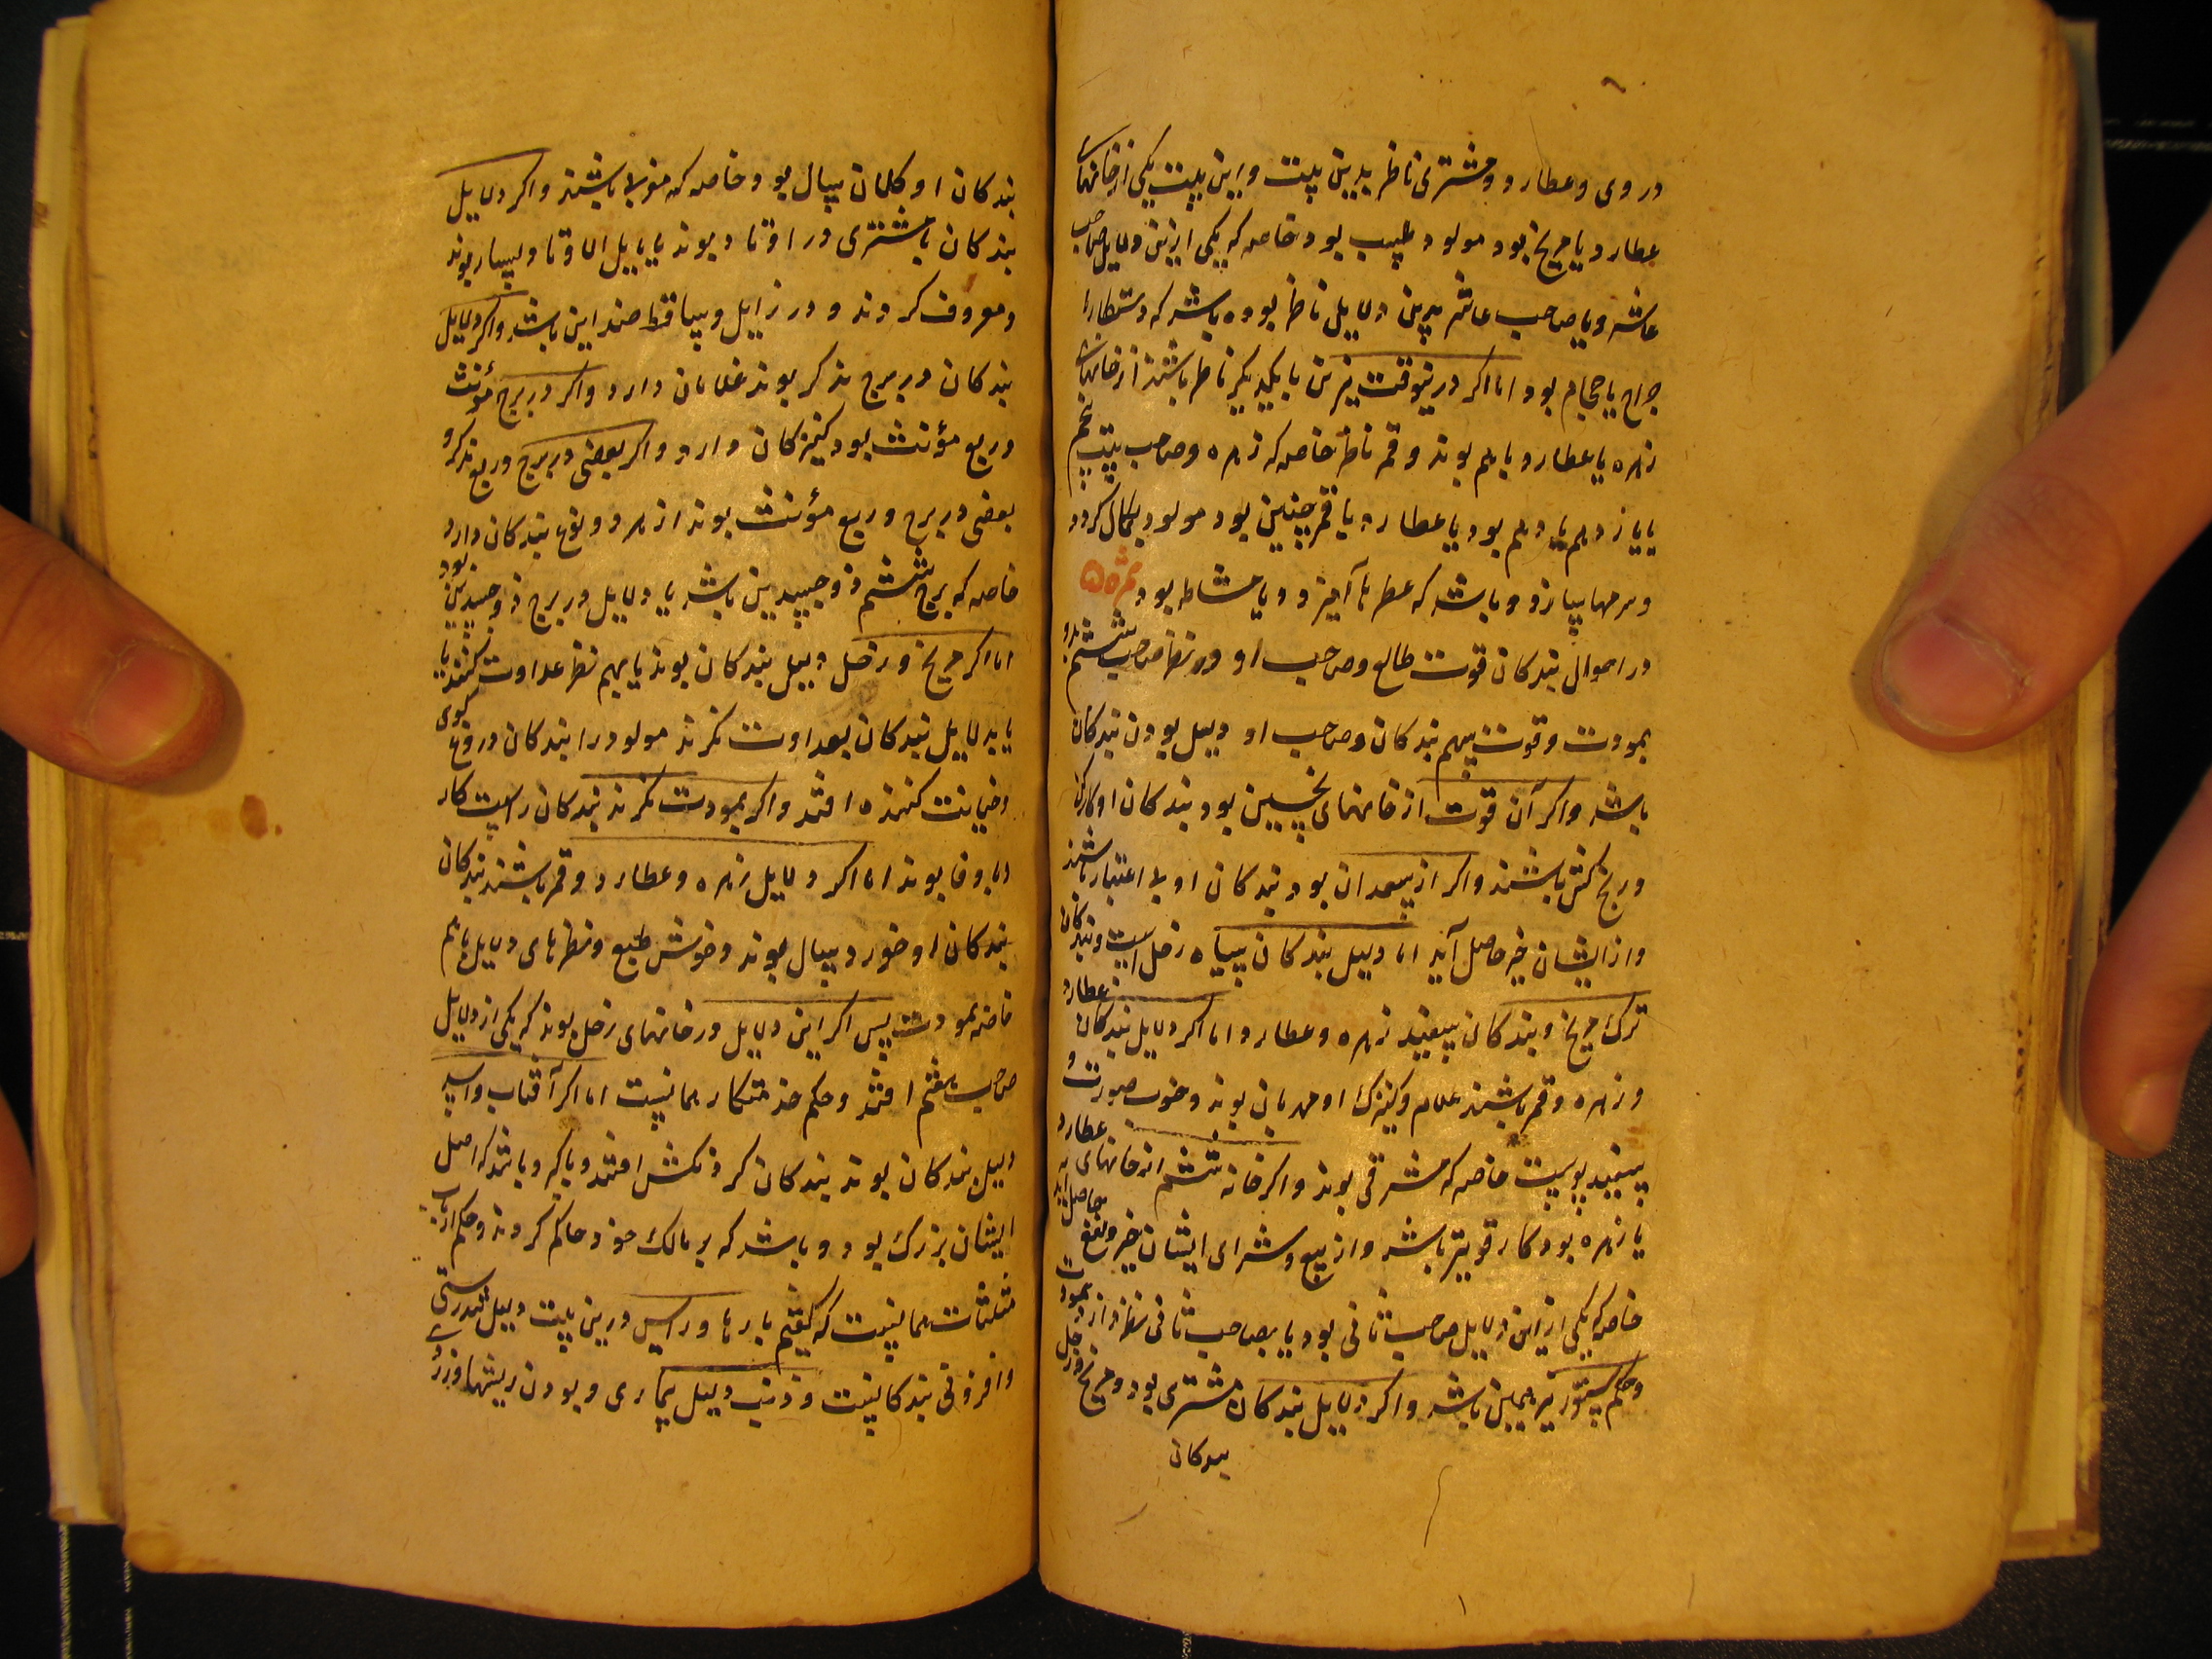 در وی و عطارد و مشتری ناظر بدین بیت و این بیت یکی از خانهای
عطارد یا مریخ بود مولود طبیب بود خاصه که یکی ازین دلایل صاحب
عاشر و یا صاحب عاشر بدین دلایل ناظر بود و باشد که دستکار
جراح یا حجام بود اما اکر درینوقت نیرین با یکدیکر ناظر باشند از خانهای
زهره یا عطارد با هم بوند و قمر ناظر خاصه که زهره و صاحب بیت پنجم
یا یازدهم یا دهم بود یا عطارد یا قمر چنین بود مولود کحال کردد
و سرمها سازد و باشد که عطرها آمیزد و یا مشاطه بود ثمره ۵۵
در احوال بندکان قوت طالع و صاحب او و نظر صاحب ششم بدو
بمودت و قوت سهم بندکان و صاحب او دلیل بودن بندکان
باشد و اکر آن قوت از خانهای نحسین بود بندکان او کارکن
و رنج کش باشند و اکر از سعدان بود بندکان او با اعتبار باشند
و از ایشان خیر حاصل آید اما دلیل بندکان سیاه زحل است و بندکان
ترک مریخ و بندکان سفید زهره و عطارد اما اکر دلایل بندکان عطارد
و زهره و قمر باشند غلام و کنیزک او مهربان بوند و خوب صورت و
سفید پوست خاصه که مشرقی بوند و اکر خانه ششم از خانهای عطارد
یا زهره بود کار قویتر باشد و از بیع و شرای ایشان خیر و نفع حاصل آید
خاصه که یکی از این دلایل صاحب ثانی بود یا بصاحب ثانی نظر دارد بمودت
و حکم ستور نیز همین باشد و اکر دلایل بندکان مشتری بود و مریخ و زحل
بندکان
بندکان او کلان سال بود خاصه که منولا باشند و اکر دلایل
بندکان با مشتری در اوتاد بوند یا مایل الاوتاد بسیار بوند
و معروف کردند و در زایل و ساقط ضد این باشد و اکر دلایل
بندکان در برج مذکر بوند غلامان دارد و اکر در برج مؤنث
و ربع مؤنث بود کنیزکان دارد و اکر بعضی در برج و ربع مذکر و
بعضی در برج و ربع مؤنث بوند از هر دو نوع بندکان دارد
خاصه که برج ششم ذوجسدین باشد یا دلایل در برج ذوجسدین بود
اما اکر مریخ و زحل دلیل بندکان بوند یا بهم نظر عداوت کنند یا
یا بدلایل بندکان بعداوت نکرند مولود را بندکان دروغ کوی
و خیانت کننده افتد و اکر بمودت نکرند بندکان راست کار
و با وفا بوند اما اکر دلایل زهره و عطارد و قمر باشند بندکان
بندکان او خورد سال بوند و خوش طبع و نظرهای دلایل باهم
خاصه بمودت پس اکر این دلایل در خانهای زحل بوند که یکی از دلایل
صاحب هفتم افتد و حکم خدمتکار همانست اما اکر آفتاب و اسد
دلیل بندکان بوند بندکان کردنکش افتند و با که و باشد که اصل
ایشان بزرک بود و باشد که بر مالک خود حاکم کردند و حکم ارباب
مثلثات همانست که کفتیم بارها و راس درین بیت دلیل تندرستی
و افزونی بندکانست و ذنب دلیل بیماری و بودن ریشها و